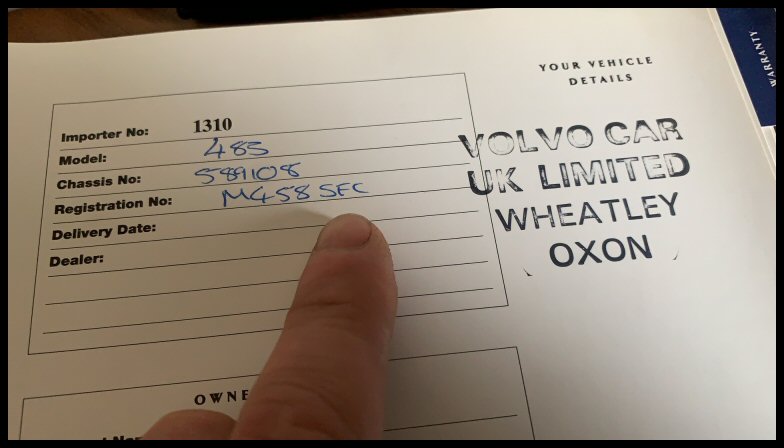 YOUR VEHICLE
DETAILS
WARRANTY
Importer No: 1310
Model: 485
Chassis No: 589108
Registration No: M458 SFC
Delivery Date:
Dealer:
VOLVO CAR
UK LIMITED
WHEATLEY
OXON
OWNE